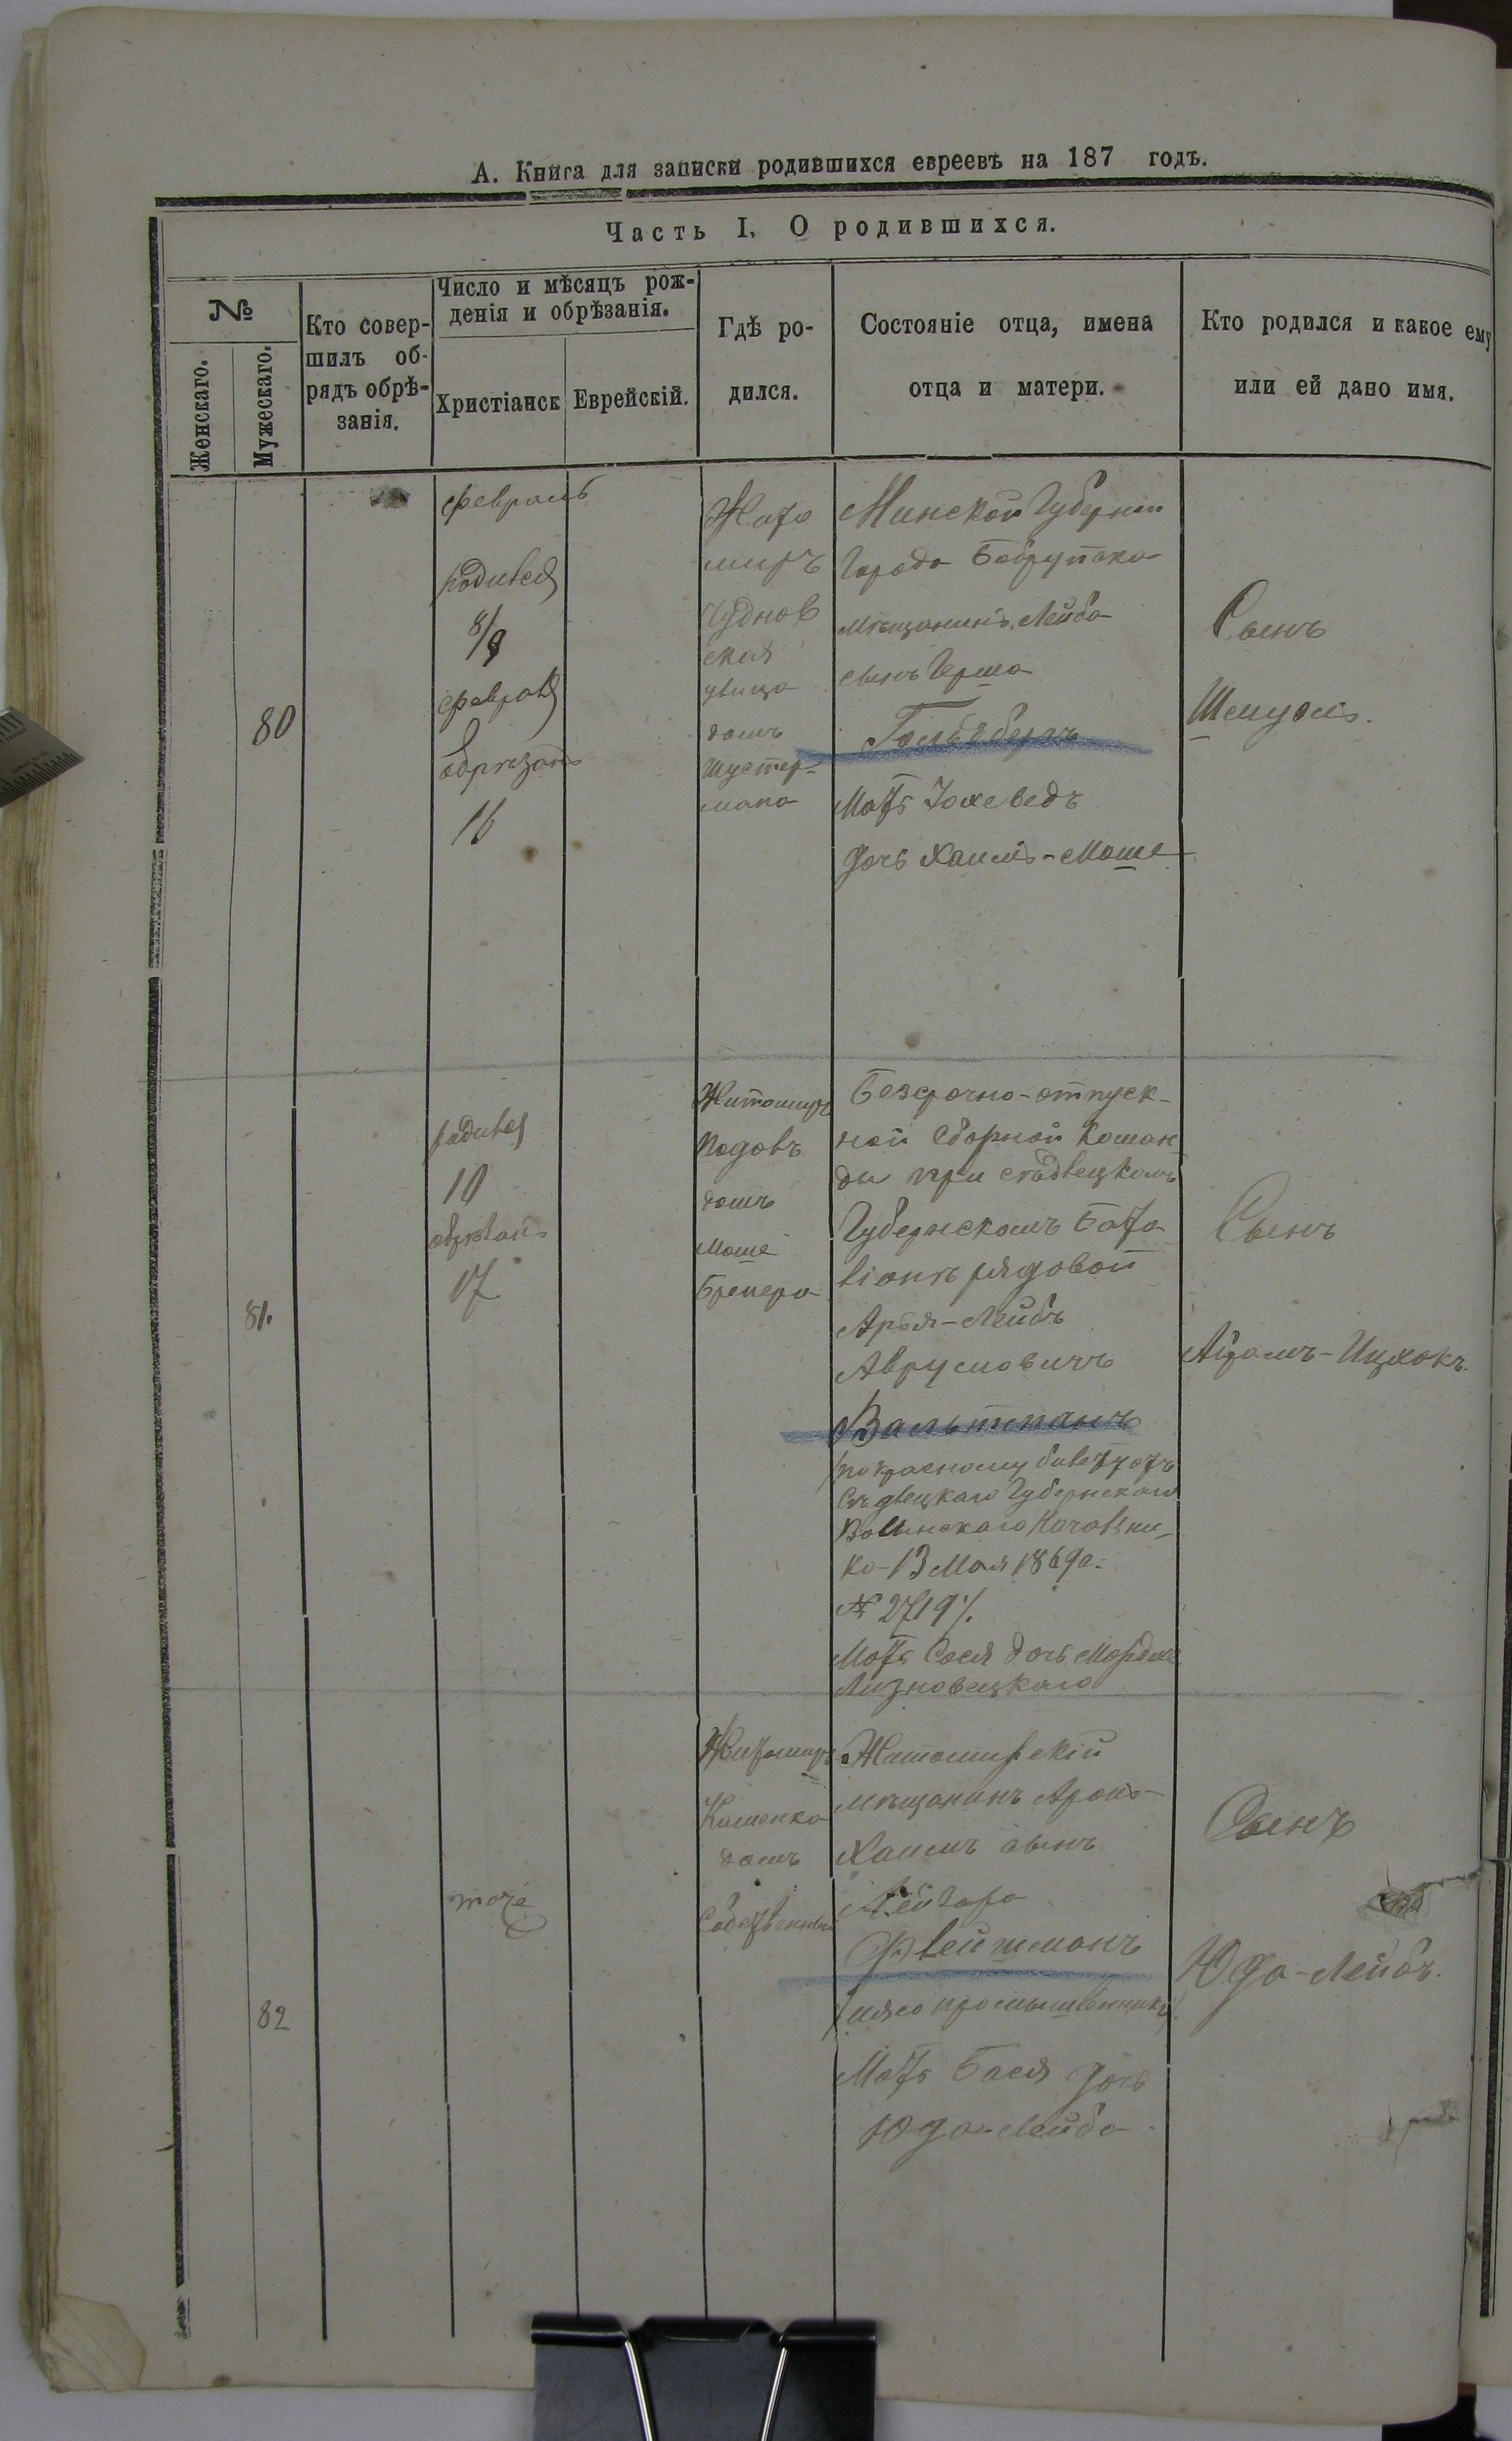 А. Книга для записки родившихся евреевъ на 187 годъ.
Часть I. О родившихся.
№
Женскаго.
Мужескаго.
Кто совер-
шилъ об-
рядъ обрѣ-
занія.
Число и мѣсяцъ рож-
денія и обрѣзанія.
Христіанск
Еврейскій.
Гдѣ ро-
дился.
Состояніе отца, имена
отца и матери.
Кто родился и какое ему
или ей дано имя.
80
февраль
родился
8/9
февраля
обрѣзанъ
16
Жито
миръ
Чуднов
ская
улица
домъ
Шустер-
мана
Минской Губерніи
Города Бобруйска
мѣщанинъ Лейба
сынъ Герша
Гольдбергъ
Мать Йохеведъ
дочь Хаимъ-Моше
Сынъ
Шмуэль.
81.
родился
10
обрѣзанъ
17
Житомиръ
домъ
Моше
Безсрочно-отпуск-
ной Сборной Коман
ды при Сѣдлецкомъ
Губернскомъ Бата
ліонѣ рядовой
Арья-Лейбъ
Аврумовичъ
Вальтманъ
по красному билету отъ
Сѣдлецкаго Губернскаго
Воинскаго Начальни-
ка 13 Мая 1869 г.
№ 2719
Мать Сося дочь Мордхе
Сынъ
Абрамъ-Ицхокъ.
82
тоже
Житомиръ
Каменка
домъ
Собственный
Житомирскій
мѣщанинъ Аронъ-
Хаимъ сынъ
Флейшманъ
Мать Бася дочь
Юда-Лейба
Сынъ
Юда-Лейбъ.